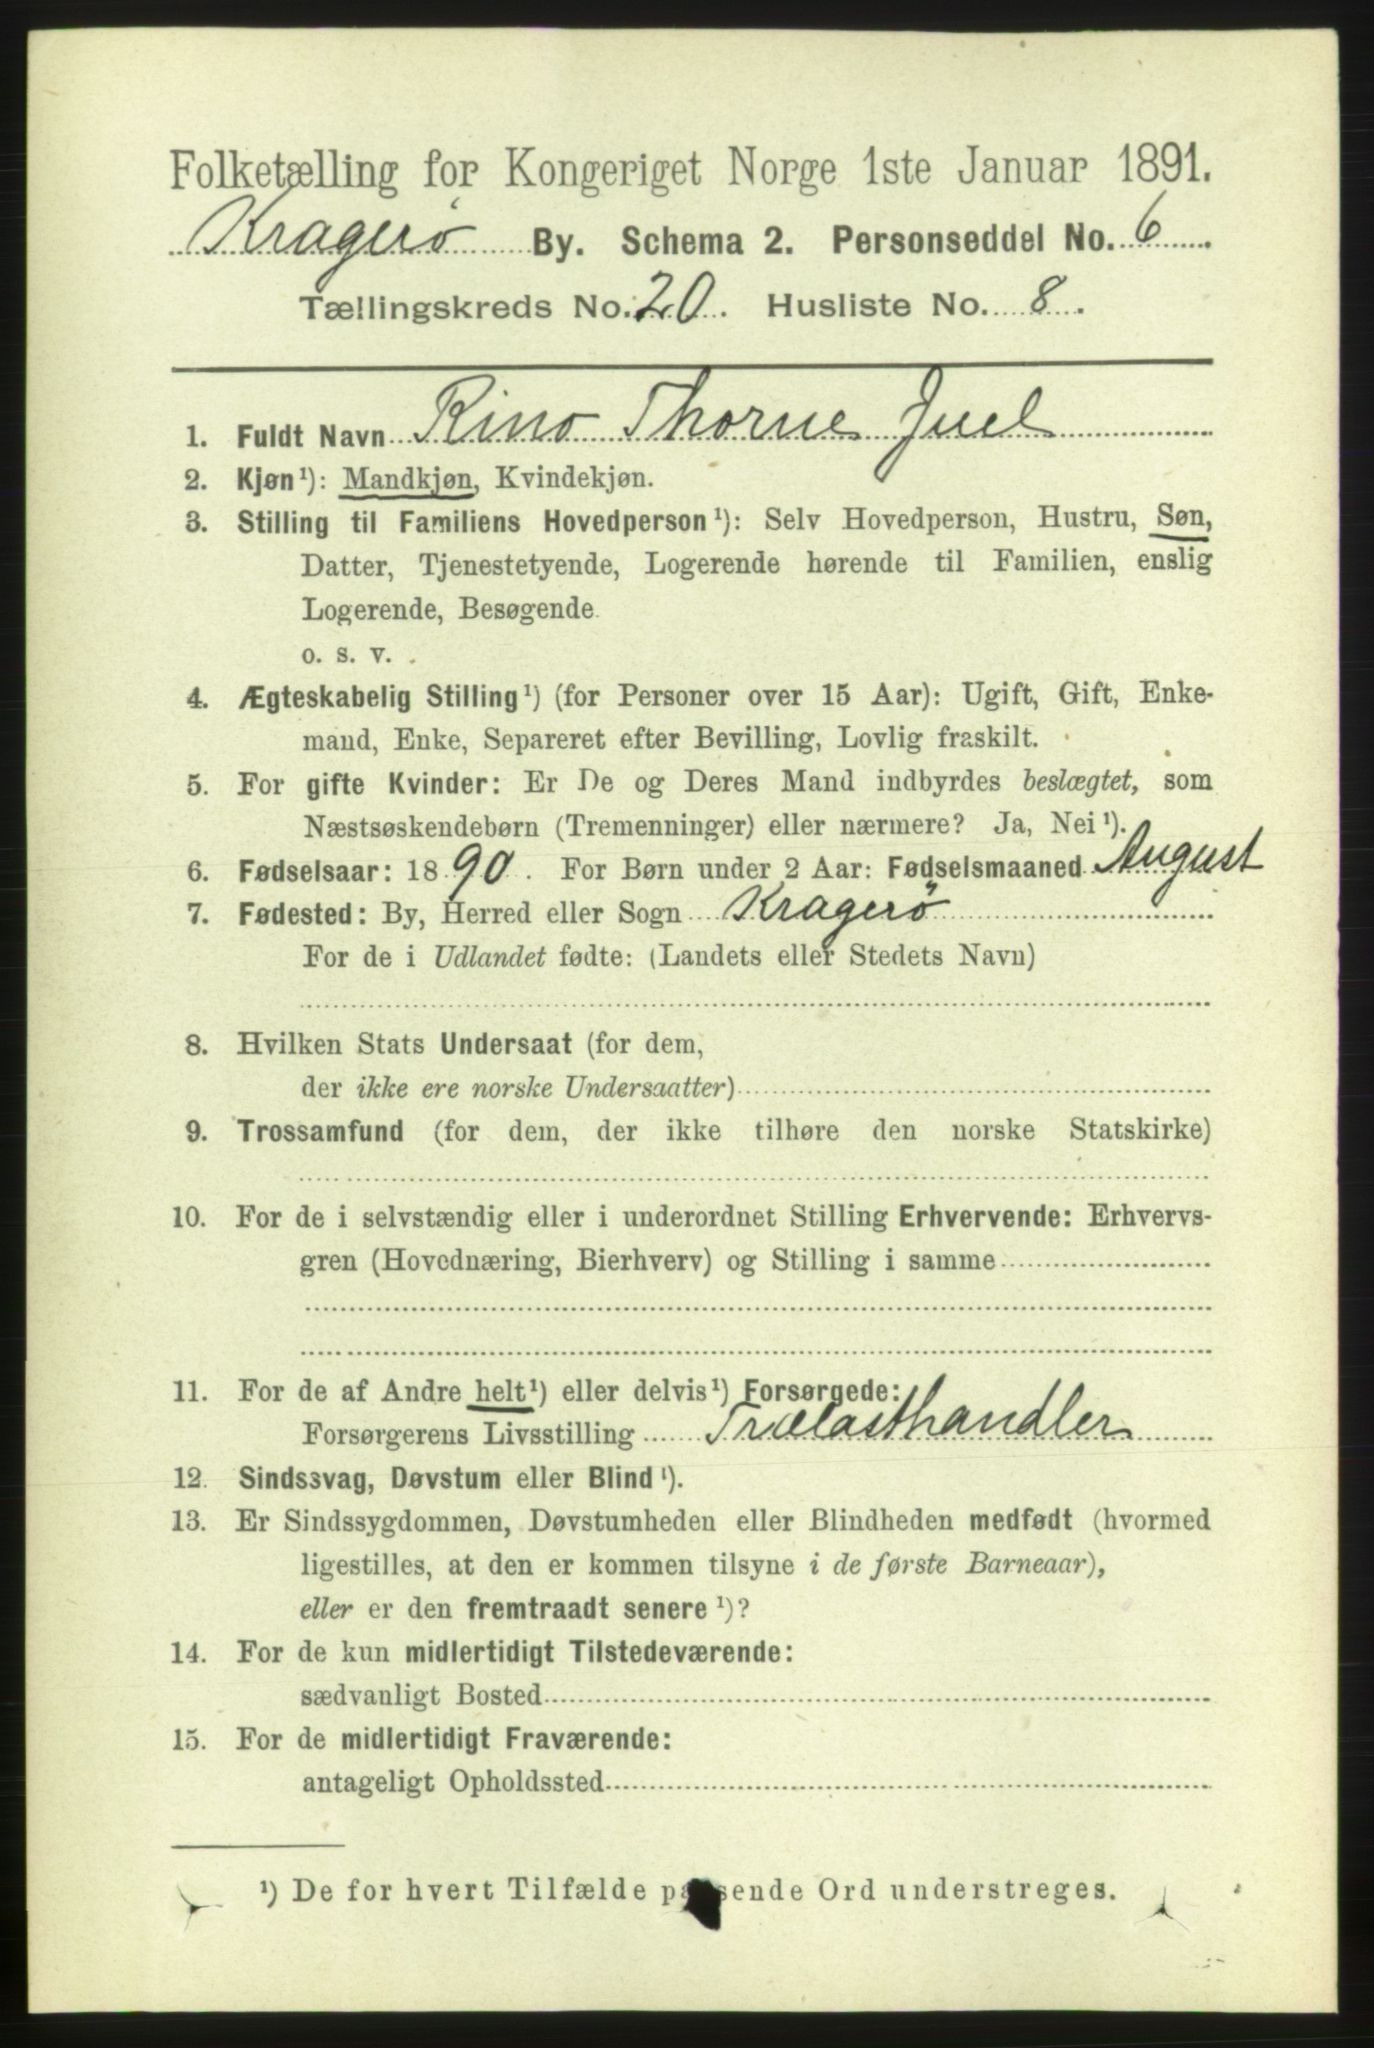 Folketælling for Kongeriget Norge 1ste Januar 1891.
Kragerö By. Schema 2. Personseddel No. 6
Tællingskreds No. 20. Husliste No. 8.
1. Fuldt Navn Rino Thorne Juel
2. Kjøn¹): Mandkjøn, Kvindekjøn.
3. Stilling til Familiens Hovedperson¹): Selv Hovedperson, Hustru, Søn,
Datter, Tjenestetyende, Logerende hørende til Familien, enslig
Logerende, Besøgende
o. s. v.
4. Ægteskabelig Stilling¹) (for Personer over 15 Aar): Ugift, Gift, Enke-
mand, Enke, Separeret efter Bevilling, Lovlig fraskilt.
5. For gifte Kvinder: Er De og Deres Mand indbyrdes beslægtet, som
Næstsøskendebørn (Tremenninger) eller nærmere? Ja, Nei¹).
6. Fødselsaar: 1890. For Børn under 2 Aar: Fødselsmaaned August
7. Fødested: By, Herred eller Sogn Kragerö
For de i Udlandet fødte: (Landets eller Stedets Navn)
8. Hvilken Stats Undersaat (for dem,
der ikke ere norske Undersaatter)
9. Trossamfund (for dem, der ikke tilhøre den norske Statskirke)
10. For de i selvstændig eller i underordnet Stilling Erhvervende: Erhvervs-
gren (Hovednæring, Bierhverv) og Stilling i samme
11. For de af Andre helt¹) eller delvis¹) Forsørgede:
Forsørgerens Livsstilling Trælasthandler
12. Sindssvag, Døvstum eller Blind¹).
13. Er Sindssygdommen, Døvstumheden eller Blindheden medfødt (hvormed
ligestilles, at den er kommen tilsyne i de første Barneaar),
eller er den fremtraadt senere¹)?
14. For de kun midlertidigt Tilstedeværende:
sædvanligt Bosted
15. For de midlertidigt Fraværende:
antageligt Opholdssted
¹) De for hvert Tilfælde passende Ord understreges.